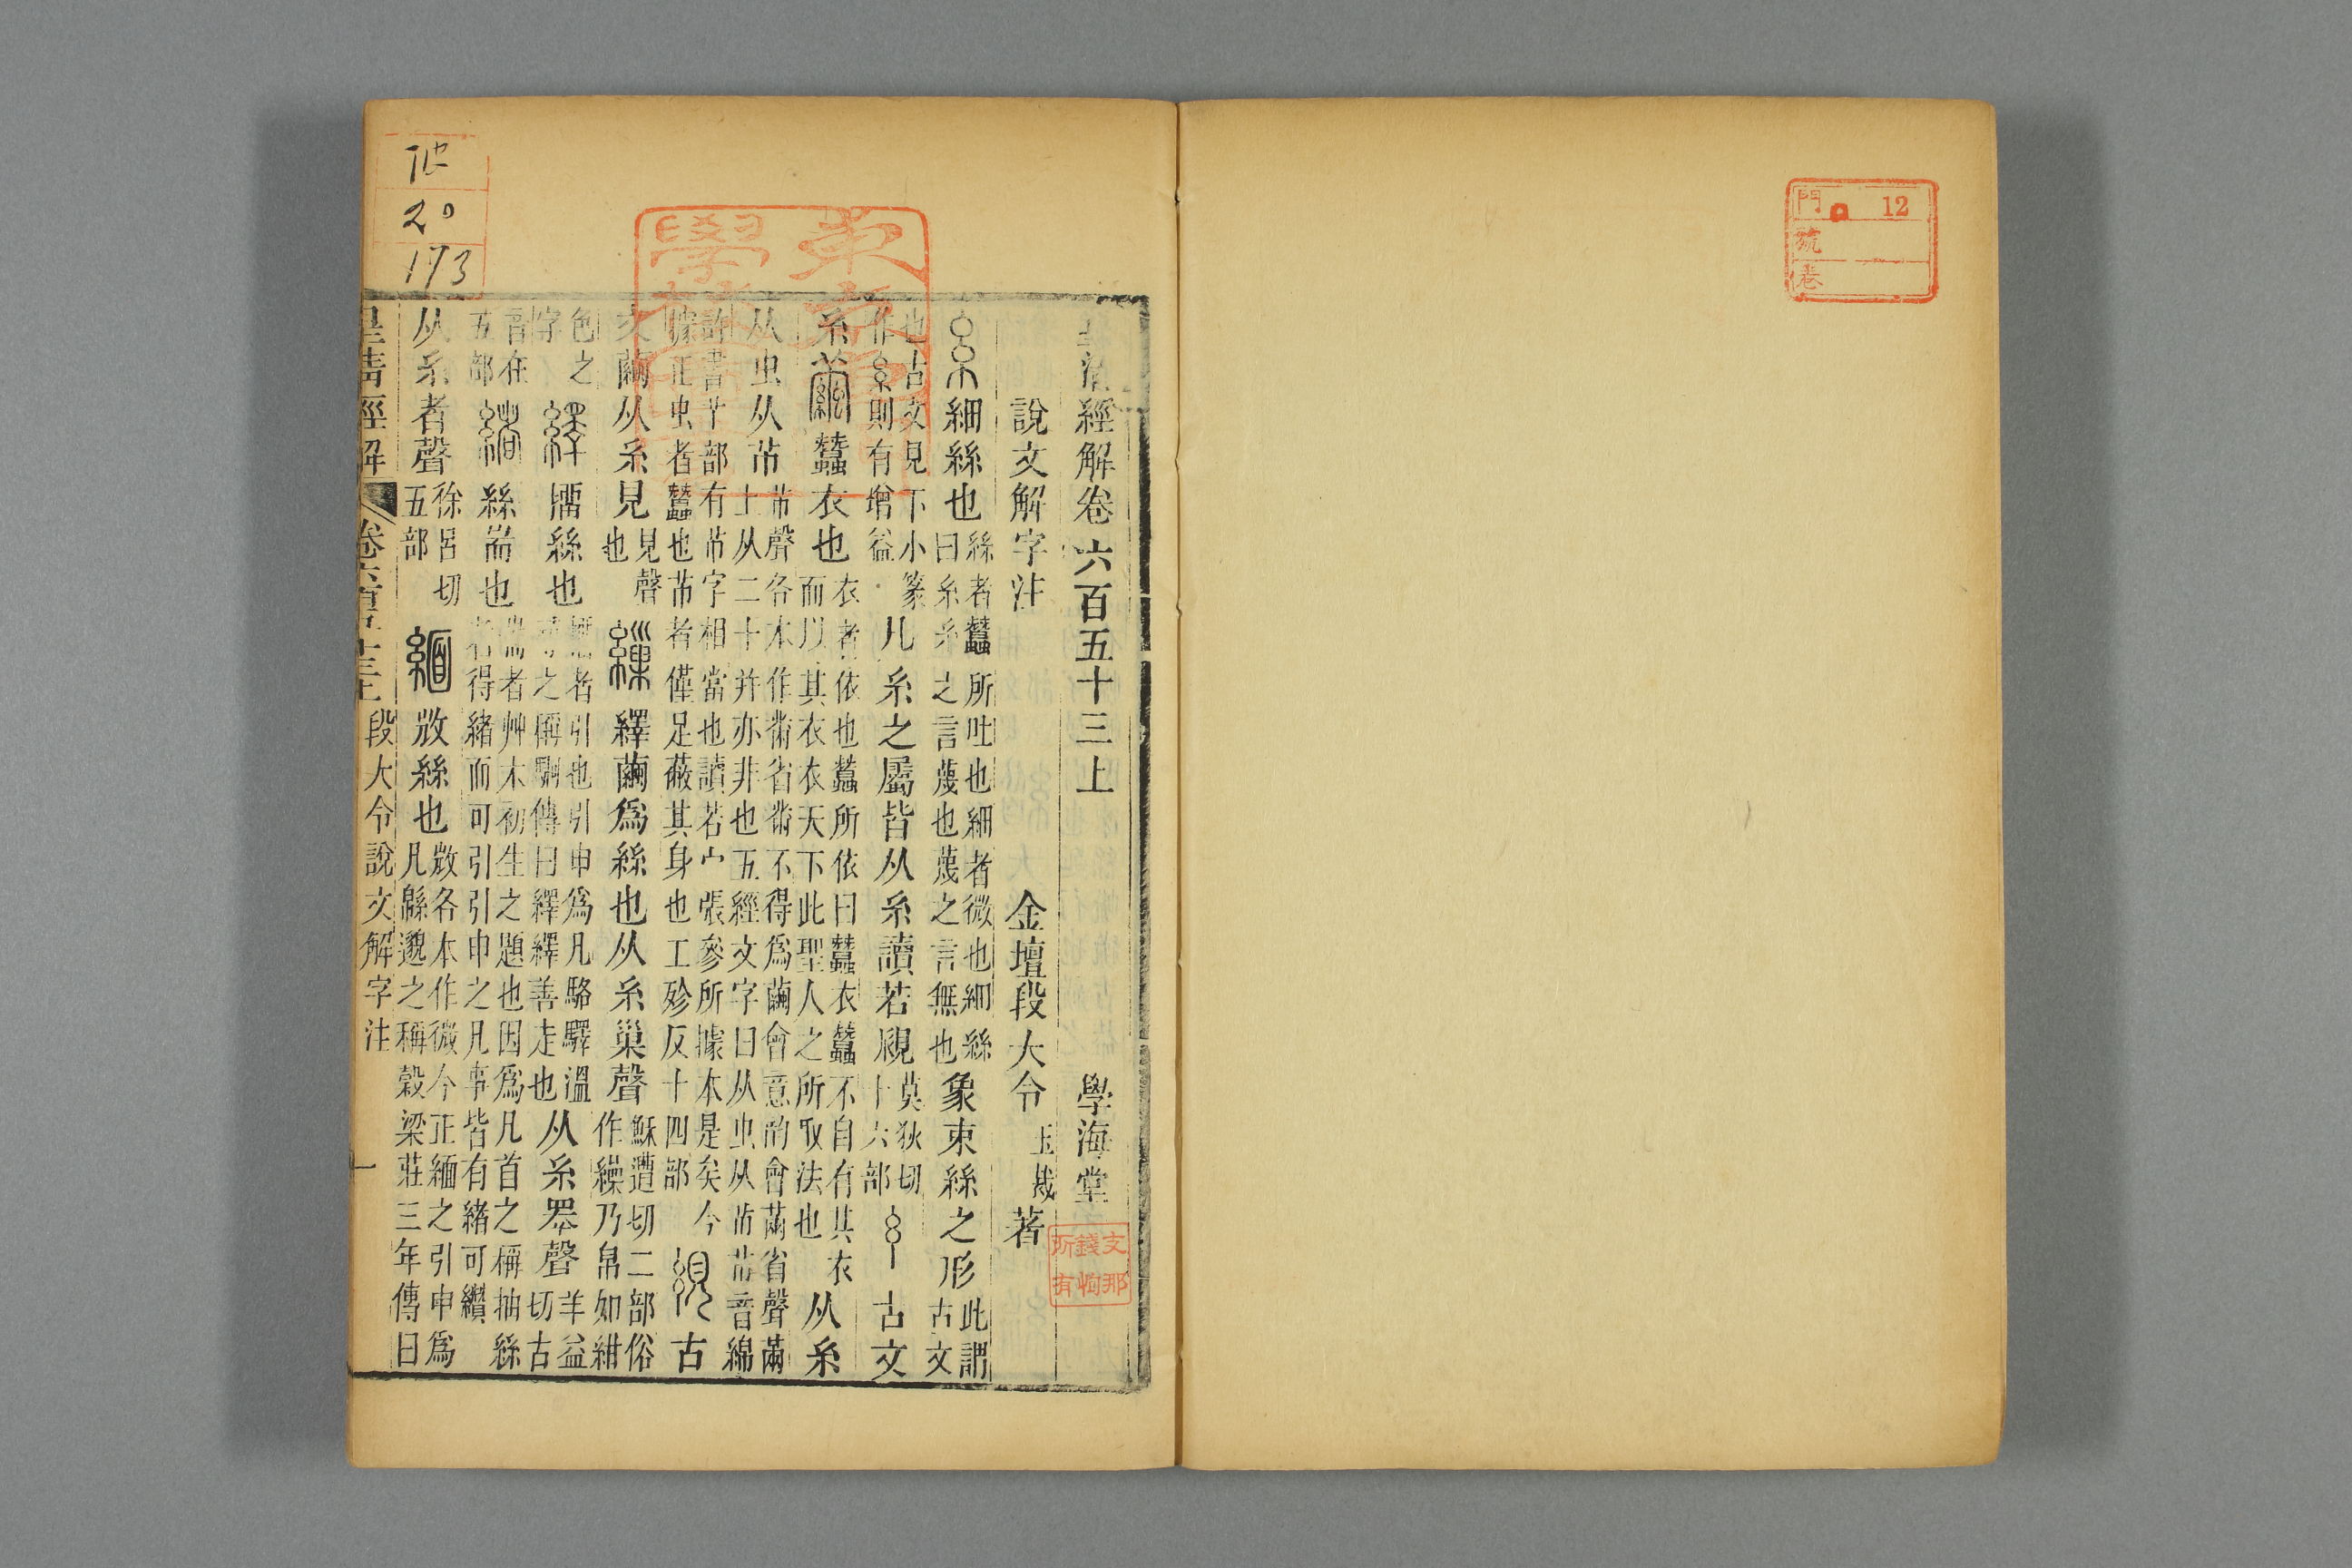 門 12
號
卷
皇清經解卷六百五十三上 學海堂
說文解字注 金壇段大令玉裁著
糸細絲也絲者蠶所吐也細者微也細絲曰糸糸之言蔑也蔑之言無也象束絲之形此謂古文
也古文見下小篆作糸則有增益凡糸之屬皆从糸讀若覛莫狄切十六部 古文
糸繭蠶衣也衣者依也蠶所依曰蠶衣蠶不自有其衣而以其衣衣天下此聖人之所取法也从糸
从虫从芇芇聲各本作黹省黹不得爲繭會意的會繭省聲繭土从二十并亦非也五經文字曰从虫从芇芇音綿
許書部有芇字相當也讀若宀張參所據本是矣今據正虫者蠶也芇者僅足蔽其身也工殄反十四部 古
文繭从糸見見聲也繅繹繭爲絲也从糸巢聲穌遭切二部俗作繰乃帛如紺
色之字繹㨨絲也引也引申爲凡駱驛溫之偁駉傳曰繹繹善走也从糸睪聲羊益切古
音在五部緒絲耑也耑者艸木初生之題也因爲凡首之稱抽絲者得緒而可引引申之凡事皆有緒可纘
从糸者聲徐呂切五部緬㪔絲也㪔各本作微今正緬之引申爲凡緜邈之稱穀梁莊三年傳曰
皇清經解 卷六百五十三上 段大令說文解字注 一
20
173
支那
錢恂
所有